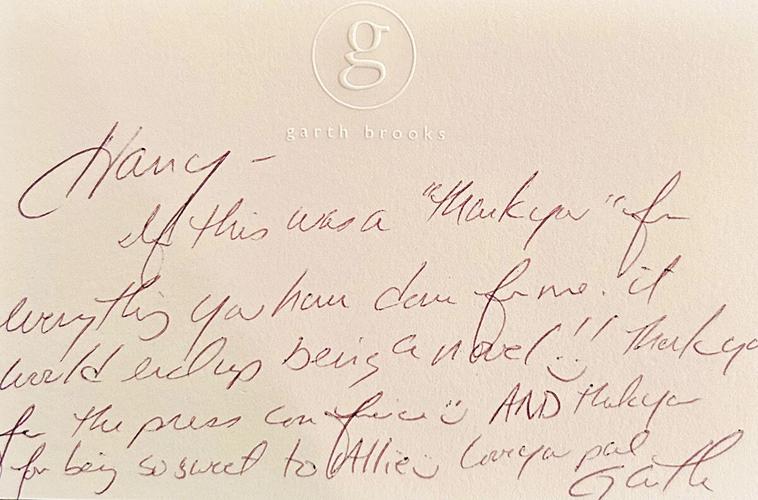 g
garth brooks
Nancy -
If this was a "thank you" for
everything you have done for me. it
would end up being a novel!! Thank you
for the press conference AND thank you
for being so sweet to Allie love you pal
Garth